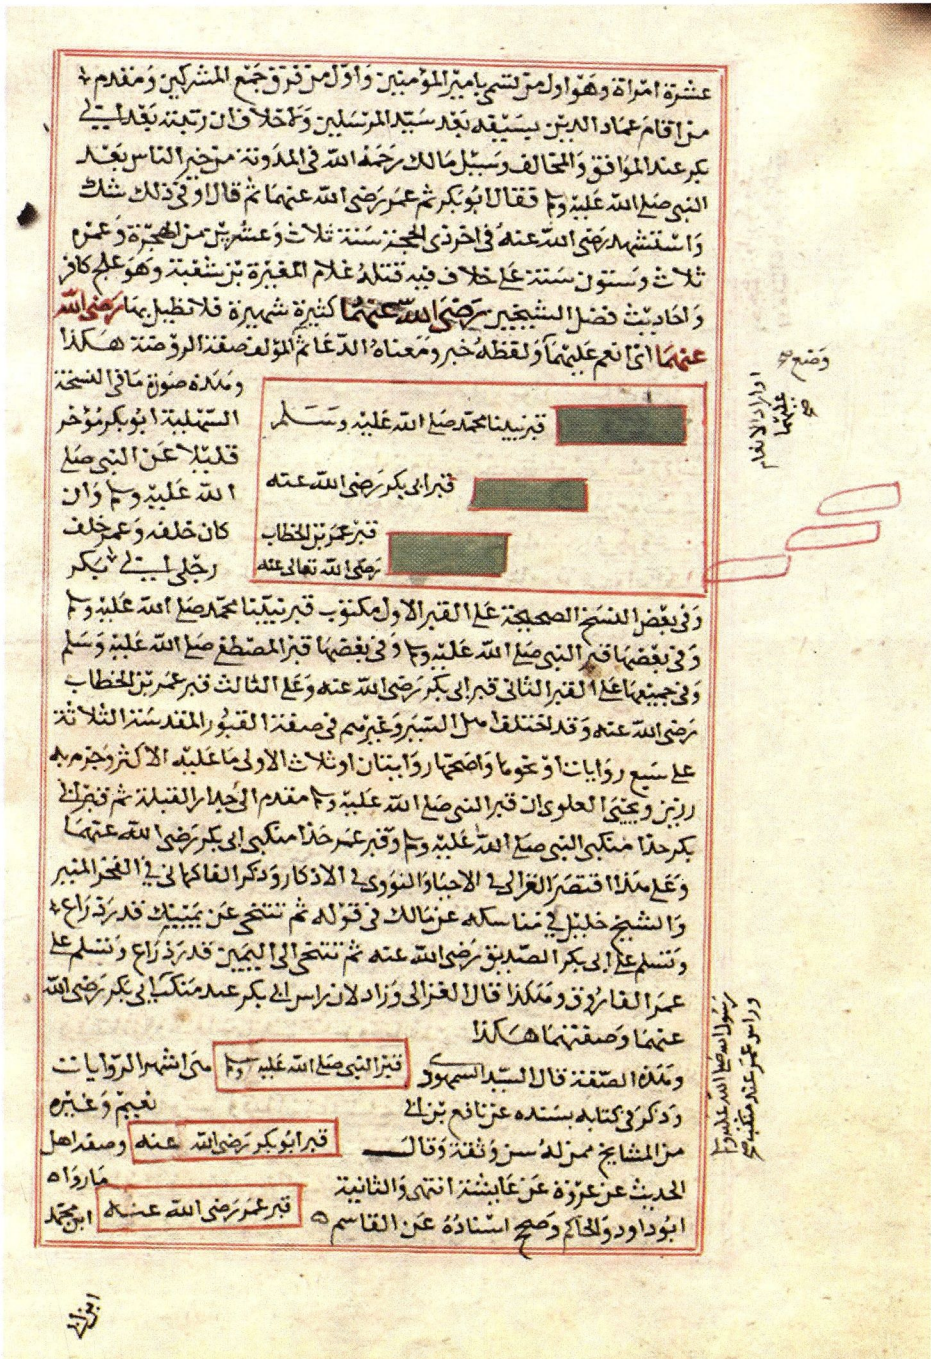 عشرة امراة وهو اول من تسمى بامير المؤمنين واول من فرق جمع المشركين ومقدم
من اقام عماد الدين بسيفه بعد سيد المرسلين ولا خلاف ان رتبته بعد ابي
بكر عند الموافق والمخالف وسئل مالك رحمه الله في المدونة من خير الناس بعد
النبي صلى الله عليه وسلم فقال ابو بكر ثم عمر رضي الله عنهما ثم قال او في ذلك شك
واستشهد رضي الله عنه في اخر ذي الحجة سنة ثلاث وعشرين من الهجرة وعمره
ثلاث وستون سنة على خلاف فيه قتله غلام المغيرة بن شعبة وهو علج كافر
واحاديث فضل الشيخين رضي الله عنهما كثيرة شهيرة فلا نطيل بها رضي الله
عنهما اي انعم عليهما ولفظه خبر ومعناه الدعا ثم المؤلف صفة الروضة هكذا
وهذه صورة ما في النسخة
السهلية ابو بكر مؤخر
قليلا عن النبي صلى
الله عليه وسلم وان
كان خلفه وعمر خلف
رجلي ابي بكر
قبر نبينا محمد صلى الله عليه وسلم
قبر ابى بكر رضي الله عنه
قبر عمر بن الخطاب
رضي الله تعالى عنه
وفي بعض النسخ الصحيحة على القبر الاول مكتوب قبر نبينا محمد صلى الله عليه وسلم
وفي بعضها قبر النبي صلى الله عليه وسلم وفي بعضها قبر المصطفى صلى الله عليه وسلم
وفي جميعها على القبر الثاني قبر ابى بكر رضي الله عنه وعلى الثالث قبر عمر بن الخطاب
رضي الله عنه وقد اختلف اهل السير وغيرهم في صفة القبور المقدسة الثلاثة
على سبع روايات او نحوها واصحها روايتان او ثلاث الاولى ما عليه الاكثر وجزم به
رزين ويحيى العلوي ان قبر النبي صلى الله عليه وسلم مقدم الى جدار القبلة ثم قبر ابي
بكر حذا منكبي النبي صلى الله عليه وسلم وقبر عمر حذا منكبي ابى بكر رضي الله عنهما
وعلى هذا اقتصر الغزالي في الاحيا والنووي في الاذكار وذكر الفاكهاني في الفجر المنير
والشيخ خليل في مناسكه عن مالك في قوله ثم تتنحى عن يمينك قدر ذراع
وتسلم على ابى بكر الصديق رضي الله عنه ثم تتنحى الى اليمين قدر ذراع وتسلم على
عمر الفاروق وهكذا قال الغزالي وزاد لان راس ابى بكر عند منكب ابي بكر رضي الله
عنهما وصفتهما هكذا
وهذه الصفة قال السيد السمهودي
قبر النبي صلى الله عليه وسلم
هي اشهر الروايات
وذكر في كتابه بسنده عن نافع بن ابي
نعيم وغيره
من المشايخ ممن له سن وثقة وقال
قبر ابو بكر رضي الله عنه
وصفه اهل
الحديث عن عروة عن عايشة انتهى والثانية
ما رواه
ابو داود والحاكم وصحح اسناده عن القاسم
قبر عمر رضي الله عنه
ابن محمد
وضع
او اراد الانعام
عليهما
صح
رسول الله صلى الله عليه وسلم
وراس عمر عند منكب